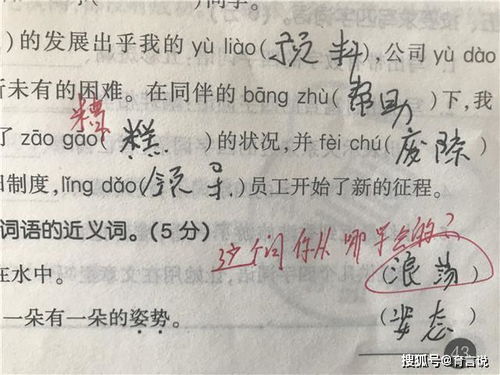 )的发展出乎我的 yù liào(预料),公司 yù dào
未有的困难。在同伴的 bāng zhù(帮助)下,我
糟
了 zāo gāo(糕)的状况,并 fèi chú(废除)
制度,lǐng dǎo(领导)员工开始了新的征程。
词语的近义词。(5分)
这个词你从哪学会的?
在水中。(浪荡)
一朵有一朵的姿势。(姿态)
43
搜狐号@育言说